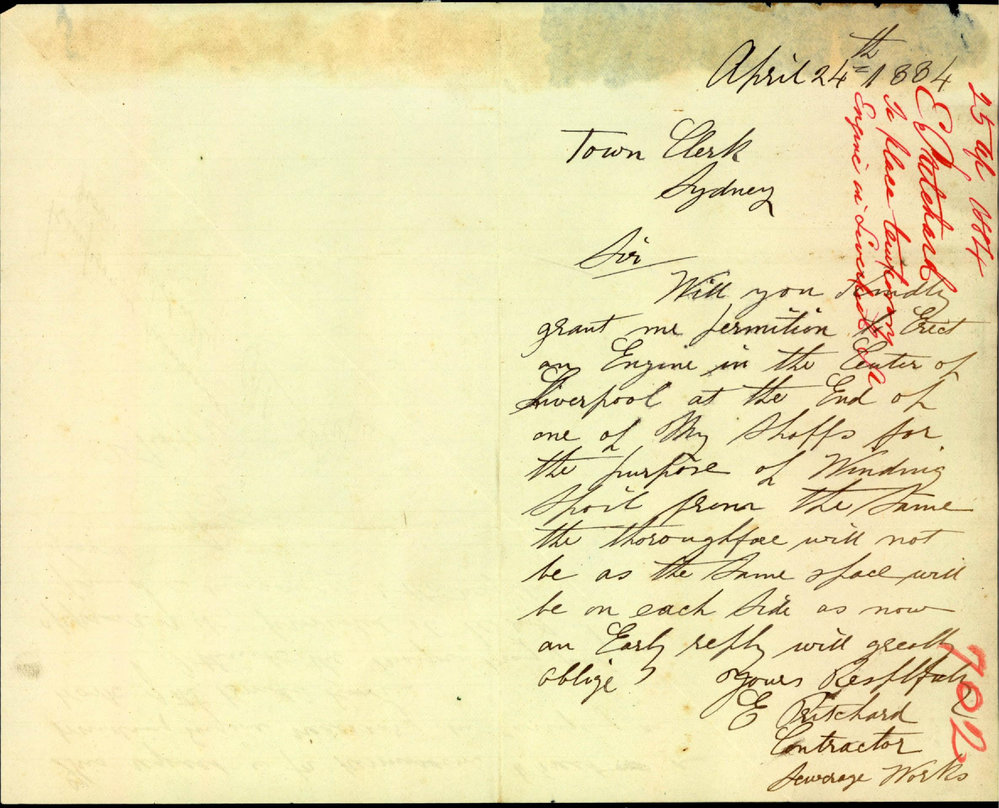 April 24th 1884
Town Clerk
Sydney
Sir
Will you Kindly
grant me permition to Erect
an Engine in the Center of
Liverpool at the End of
one of My Shaffs for
the purpose of Winding
Spoil from the Same
the thoroughfae will not
be as the Same space will
be on each Side as now
an Early reply will greatly
oblige Yours Respffully
E Pritchard
Contractor
Sewerage Works
25 Ap 1884
E Pritchard
To place temporary
Engine in Liverpool
702